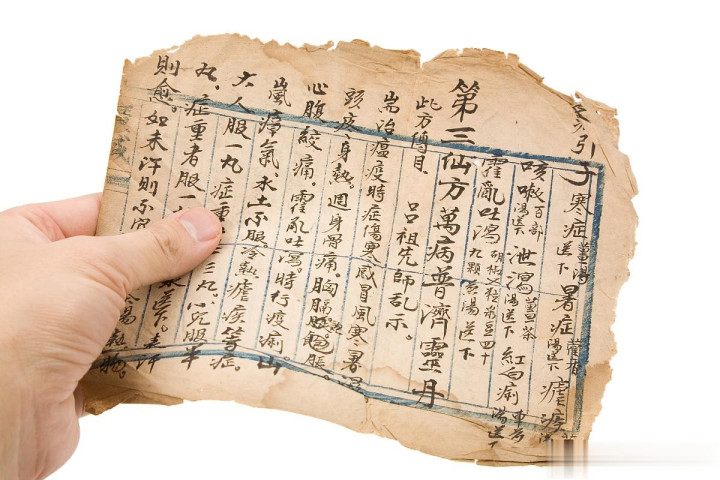 引子 寒症薑湯送下 暑症藿香湯送下 瘧疾
咳嗽百部湯送下 泄瀉薑茶湯送下 紅白痢車前湯送下
霍亂吐瀉胡椒七粒綠豆四十九顆煎湯送下
第三仙方萬病普濟靈丹
此方傳自 呂祖先師乩示。
耑治瘟疫時症傷寒感冒風寒暑濕
頭疼身熱。週身骨痛。胸膈飽脹。
心腹絞痛。霍亂吐瀉。時行疫痢。山
嵐瘴氣。水土不服冷熱瘧疾等症。
大人服一丸症重三丸。小兒服半
丸。症重者服一送下。
則愈。如未汗則不宜熱物。